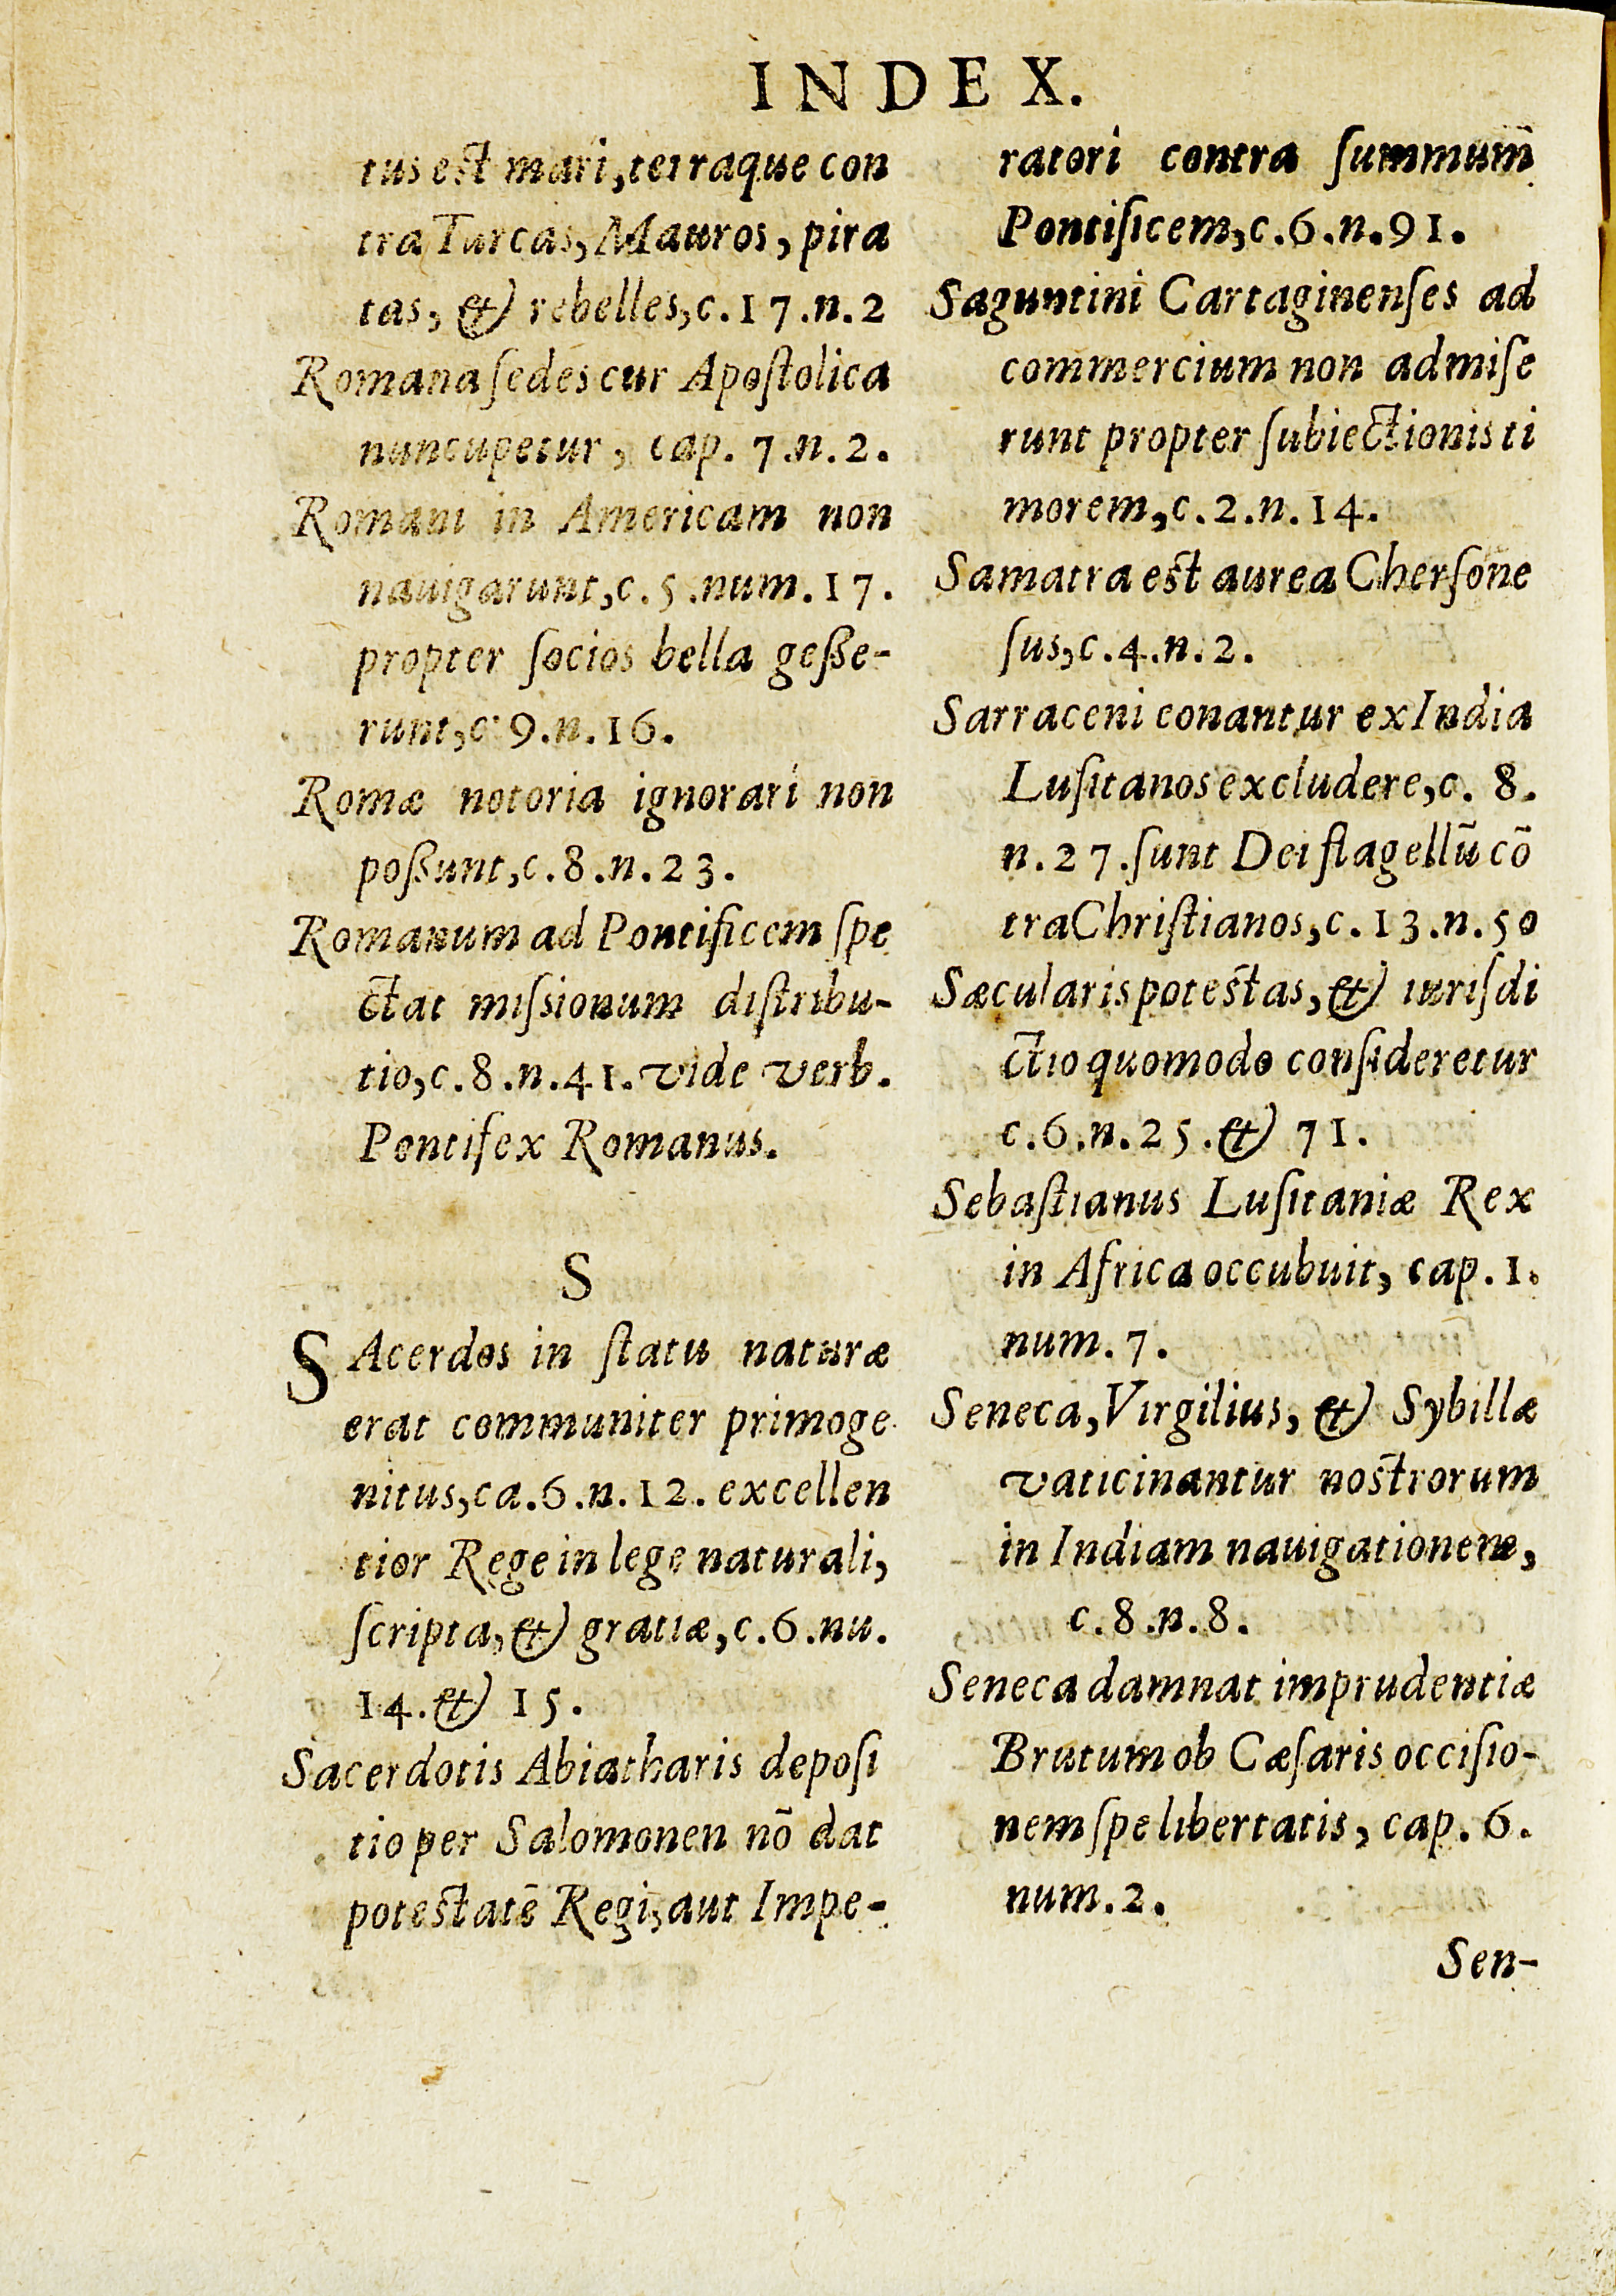 INDEX.
tus est mari, terraque con
tra Turcas, Mauros, pira
tas, & rebelles, c.17.n.2
Romana ſedes cur Apoſtolica
nuncupetur, cap. 7.n.2.
Romani in Americam non
nauigarunt, c.5.num.17.
propter ſocios bella geſſe-
runt, c.9.n.16.
Romæ notoria ignorari non
poſſunt, c.8.n.23.
Romanum ad Pontificem ſpe
ctat miſsionum diſtribu-
tio, c.8.n.41. vide verb.
Pontifex Romanus.
S
SAcerdos in ſtatu naturæ
erat communiter primoge
nitus, ca.6.n.12. excellen
tior Rege in lege naturali,
ſcripta, & gratiæ, c.6.nu.
14. & 15.
Sacerdotis Abiatharis depoſi
tio per Salomonen nō dat
poteſtatē Regi, aut Impe-
ratori contra ſummum̄
Pontificem, c.6.n.91.
Saguntini Cartaginenſes ad
commercium non admiſe
runt propter ſubiectionis ti
morem, c.2.n.14.
Samatra est aurea Cherſone
ſus, c.4.n.2.
Sarraceni conantur ex India
Luſitanos excludere, c. 8.
n.27. ſunt Dei flagellū cō
tra Chriſtianos, c.13.n.50
Sæcularis poteſtas, & iuriſdi
ctio quomodo conſideretur
c.6.n.25. & 71.
Sebaſtianus Luſitaniæ Rex
in Africa occubuit, cap.1.
num.7.
Seneca, Virgilius, & Sybillæ
vaticinantur noſtrorum
in Indiam nauigationem,
c.8.n.8.
Seneca damnat imprudentiæ
Brutum ob Cæſaris occiſio-
nem ſpe libertatis, cap.6.
num.2.
Sen-